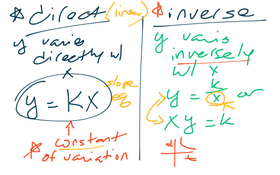 ☆ direct (linear)
y varies
directly w/
x
y = Kx
slope
eq
☆ constant
of variation
☆ inverse
y varis
inversely
w/ x
y = k/x or
xy = k